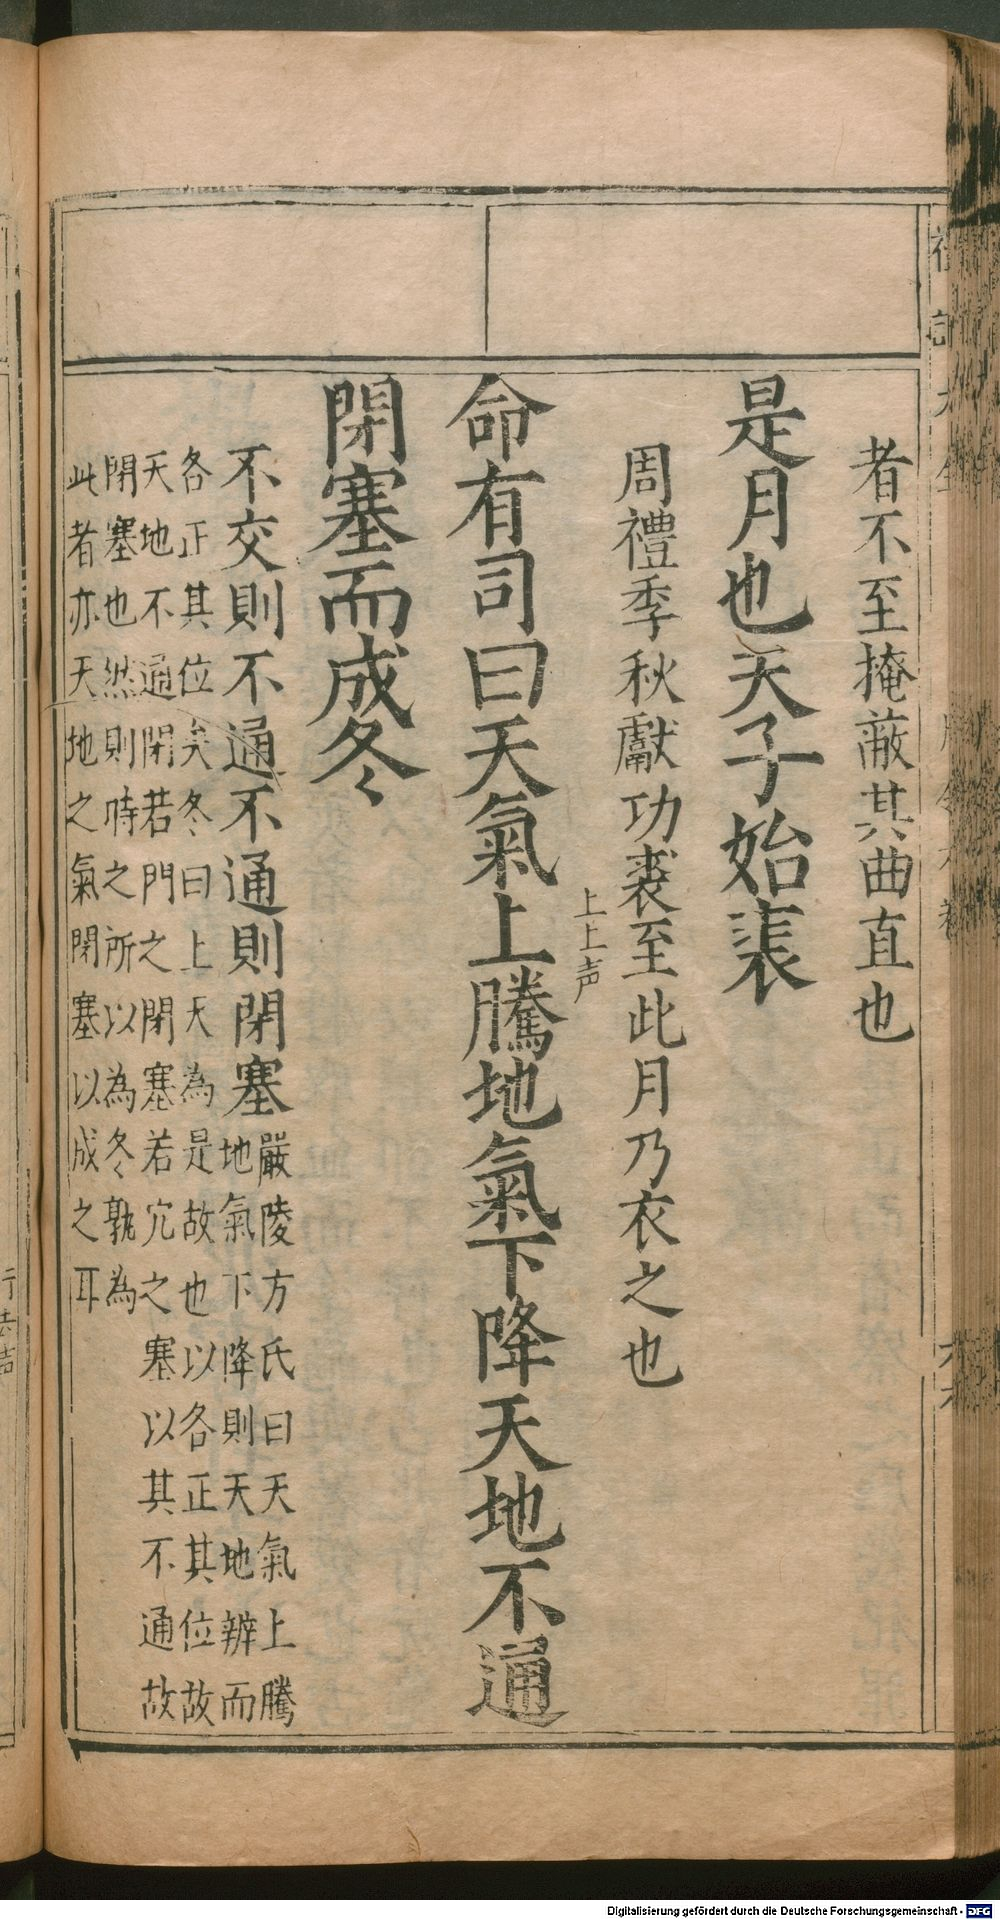 者不至掩蔽其曲直也
是月也天子始裘
周禮季秋獻功裘至此月乃衣之也
上上声
命有司曰天氣上騰地氣下降天地不通
閉塞而成冬
不交則不通不通則閉塞
嚴陵方氏曰天氣上騰
地氣下降則天地辨而
各正其位矣冬曰上天為是故也以各正其位故
天地不通閉若門之閉塞若穴之塞以其不通故
閉塞也然則時之所以為冬孰為
此者亦天地之氣閉塞以成之耳
Digitalisierung gefördert durch die Deutsche Forschungsgemeinschaft - DFG